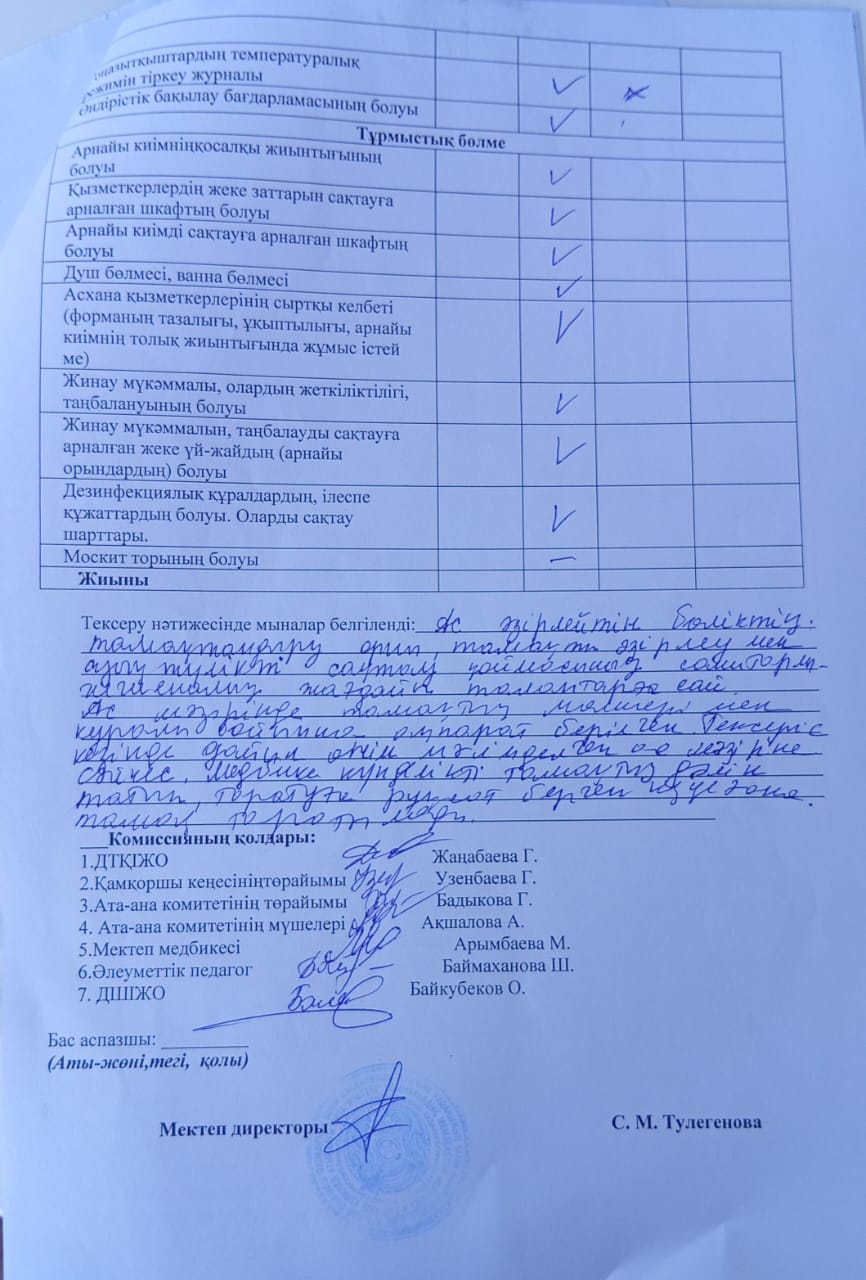 температуралық
режимін тіркеу журналы ✓
Өндірістік бақылау бағдарламасының болуы ✓
Тұрмыстық бөлме
Арнайы киімніңқосалқы жиынтығының
болуы ✓
Қызметкерлердің жеке заттарын сақтауға
арналған шкафтың болуы ✓
Арнайы киімді сақтауға арналған шкафтың
болуы ✓
Душ бөлмесі, ванна бөлмесі ✓
Асхана қызметкерлерінің сыртқы келбеті
(форманың тазалығы, ұқыптылығы, арнайы ✓
киімнің толық жиынтығында жұмыс істей
ме)
Жинау мүкәммалы, олардың жеткіліктілігі,
таңбалануының болуы ✓
Жинау мүкәммалын, таңбалауды сақтауға
арналған жеке үй-жайдың (арнайы ✓
орындардың) болуы
Дезинфекциялық құралдардың, ілеспе
құжаттардың болуы. Оларды сақтау ✓
шарттары.
Москит торының болуы —
Жиыны
Тексеру нәтижесінде мыналар белгіленді: Ас әзірлейтін бөліктің.
тамақтандыру орын, тамақты әзірлеу мен
азық түлікті сақтау қоймасының санитарлы-
гигиеналық жағдайы талаптарға сай.
Ас мәзірінде тамақтың мөлшері мен
құрамы бойынша ақпарат берілген. Тексеріс
кезінде дайын өнім мәлімделген ас мәзіріне
сәйкес. Медбике күнделікті тамақтың дәмін
татып, таратуға рұқсат берген
тамақ таратылады.
Комиссияның қолдары:
1.ДТҚІЖО Жаңабаева Г.
2.Қамқоршы кеңесініңтөрайымы Узенбаева Г.
3.Ата-ана комитетінің төрайымы Бадыкова Г.
4. Ата-ана комитетінің мүшелері Ақшалова А.
5.Мектеп медбикесі Арымбаева М.
6.Әлеуметтік педагог Баймаханова Ш.
7. ДШІЖО Байкубеков О.
Бас аспазшы:
(Аты-жөні,тегі, қолы)
Мектеп директоры С. М. Тулегенова